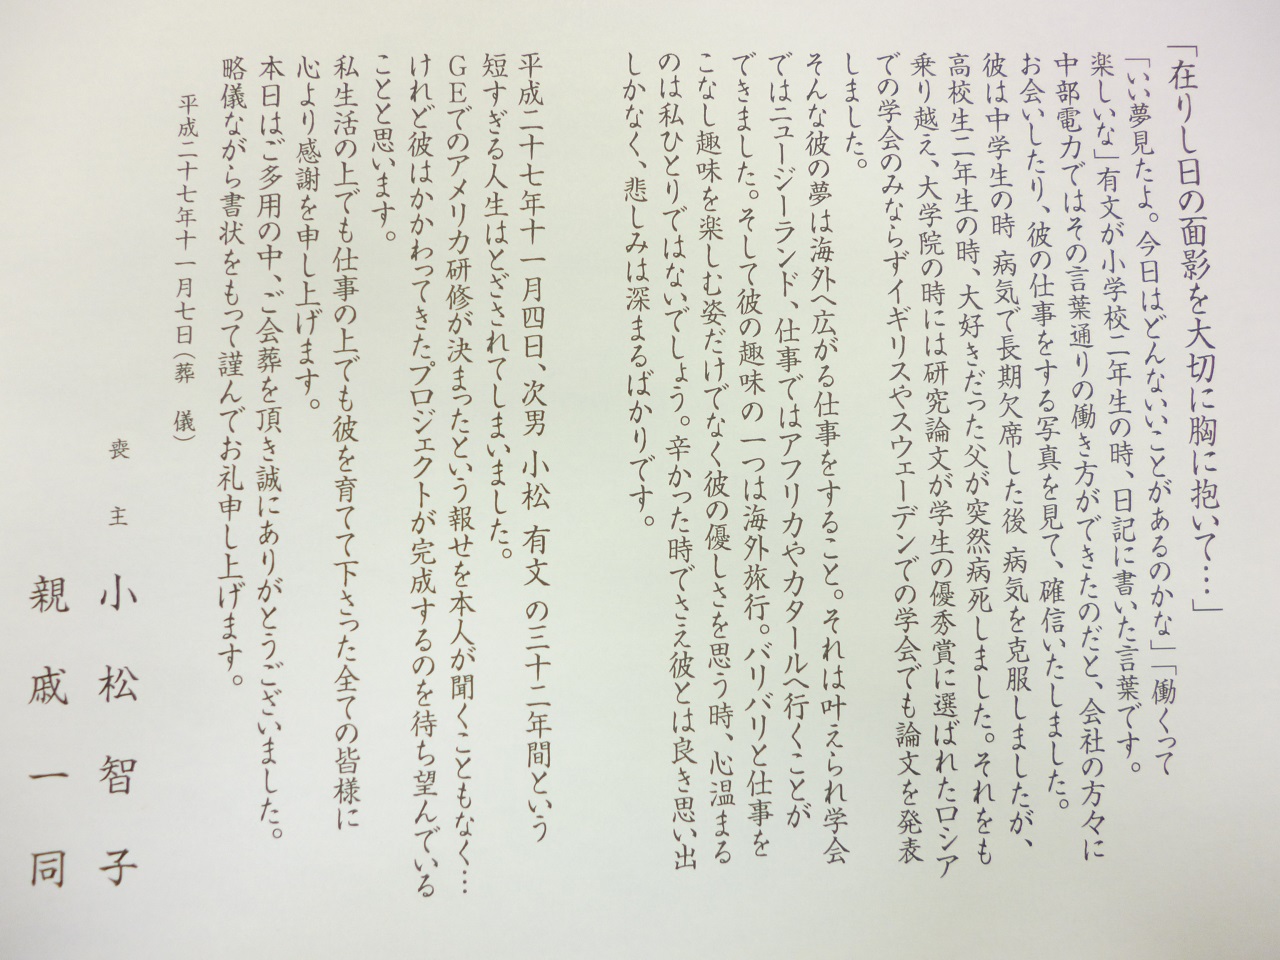 「在りし日の面影を大切に胸に抱いて…」
「いい夢見たよ。今日はどんないいことがあるのかな」「働くって
楽しいな」有文が小学校二年生の時、日記に書いた言葉です。
中部電力ではその言葉通りの働き方ができたのだと、会社の方々に
お会いしたり、彼の仕事をする写真を見て、確信いたしました。
彼は中学生の時 病気で長期欠席した後 病気を克服しましたが、
高校生二年生の時、大好きだった父が突然病死しました。それをも
乗り越え、大学院の時には研究論文が学生の優秀賞に選ばれたロシア
での学会のみならずイギリスやスウェーデンでの学会でも論文を発表
しました。
そんな彼の夢は海外へ広がる仕事をすること。それは叶えられ学会
ではニュージーランド、仕事ではアフリカやカタールへ行くことが
できました。そして彼の趣味の一つは海外旅行。バリバリと仕事を
こなし趣味を楽しむ姿だけでなく彼の優しさを思う時、心温まる
のは私ひとりではないでしょう。辛かった時でさえ彼とは良き思い出
しかなく、悲しみは深まるばかりです。
平成二十七年十一月四日、次男 小松 有文 の三十二年間という
短すぎる人生はとざされてしまいました。
GEでのアメリカ研修が決まったという報せを本人が聞くこともなく…
けれど彼はかかわってきたプロジェクトが完成するのを待ち望んでいる
ことと思います。
私生活の上でも仕事の上でも彼を育てて下さった全ての皆様に
心より感謝を申し上げます。
本日はご多用の中、ご会葬を頂き誠にありがとうございました。
略儀ながら書状をもって謹んでお礼申し上げます。
平成二十七年十一月七日（葬 儀）
喪 主 小 松 智 子
親 戚 一 同